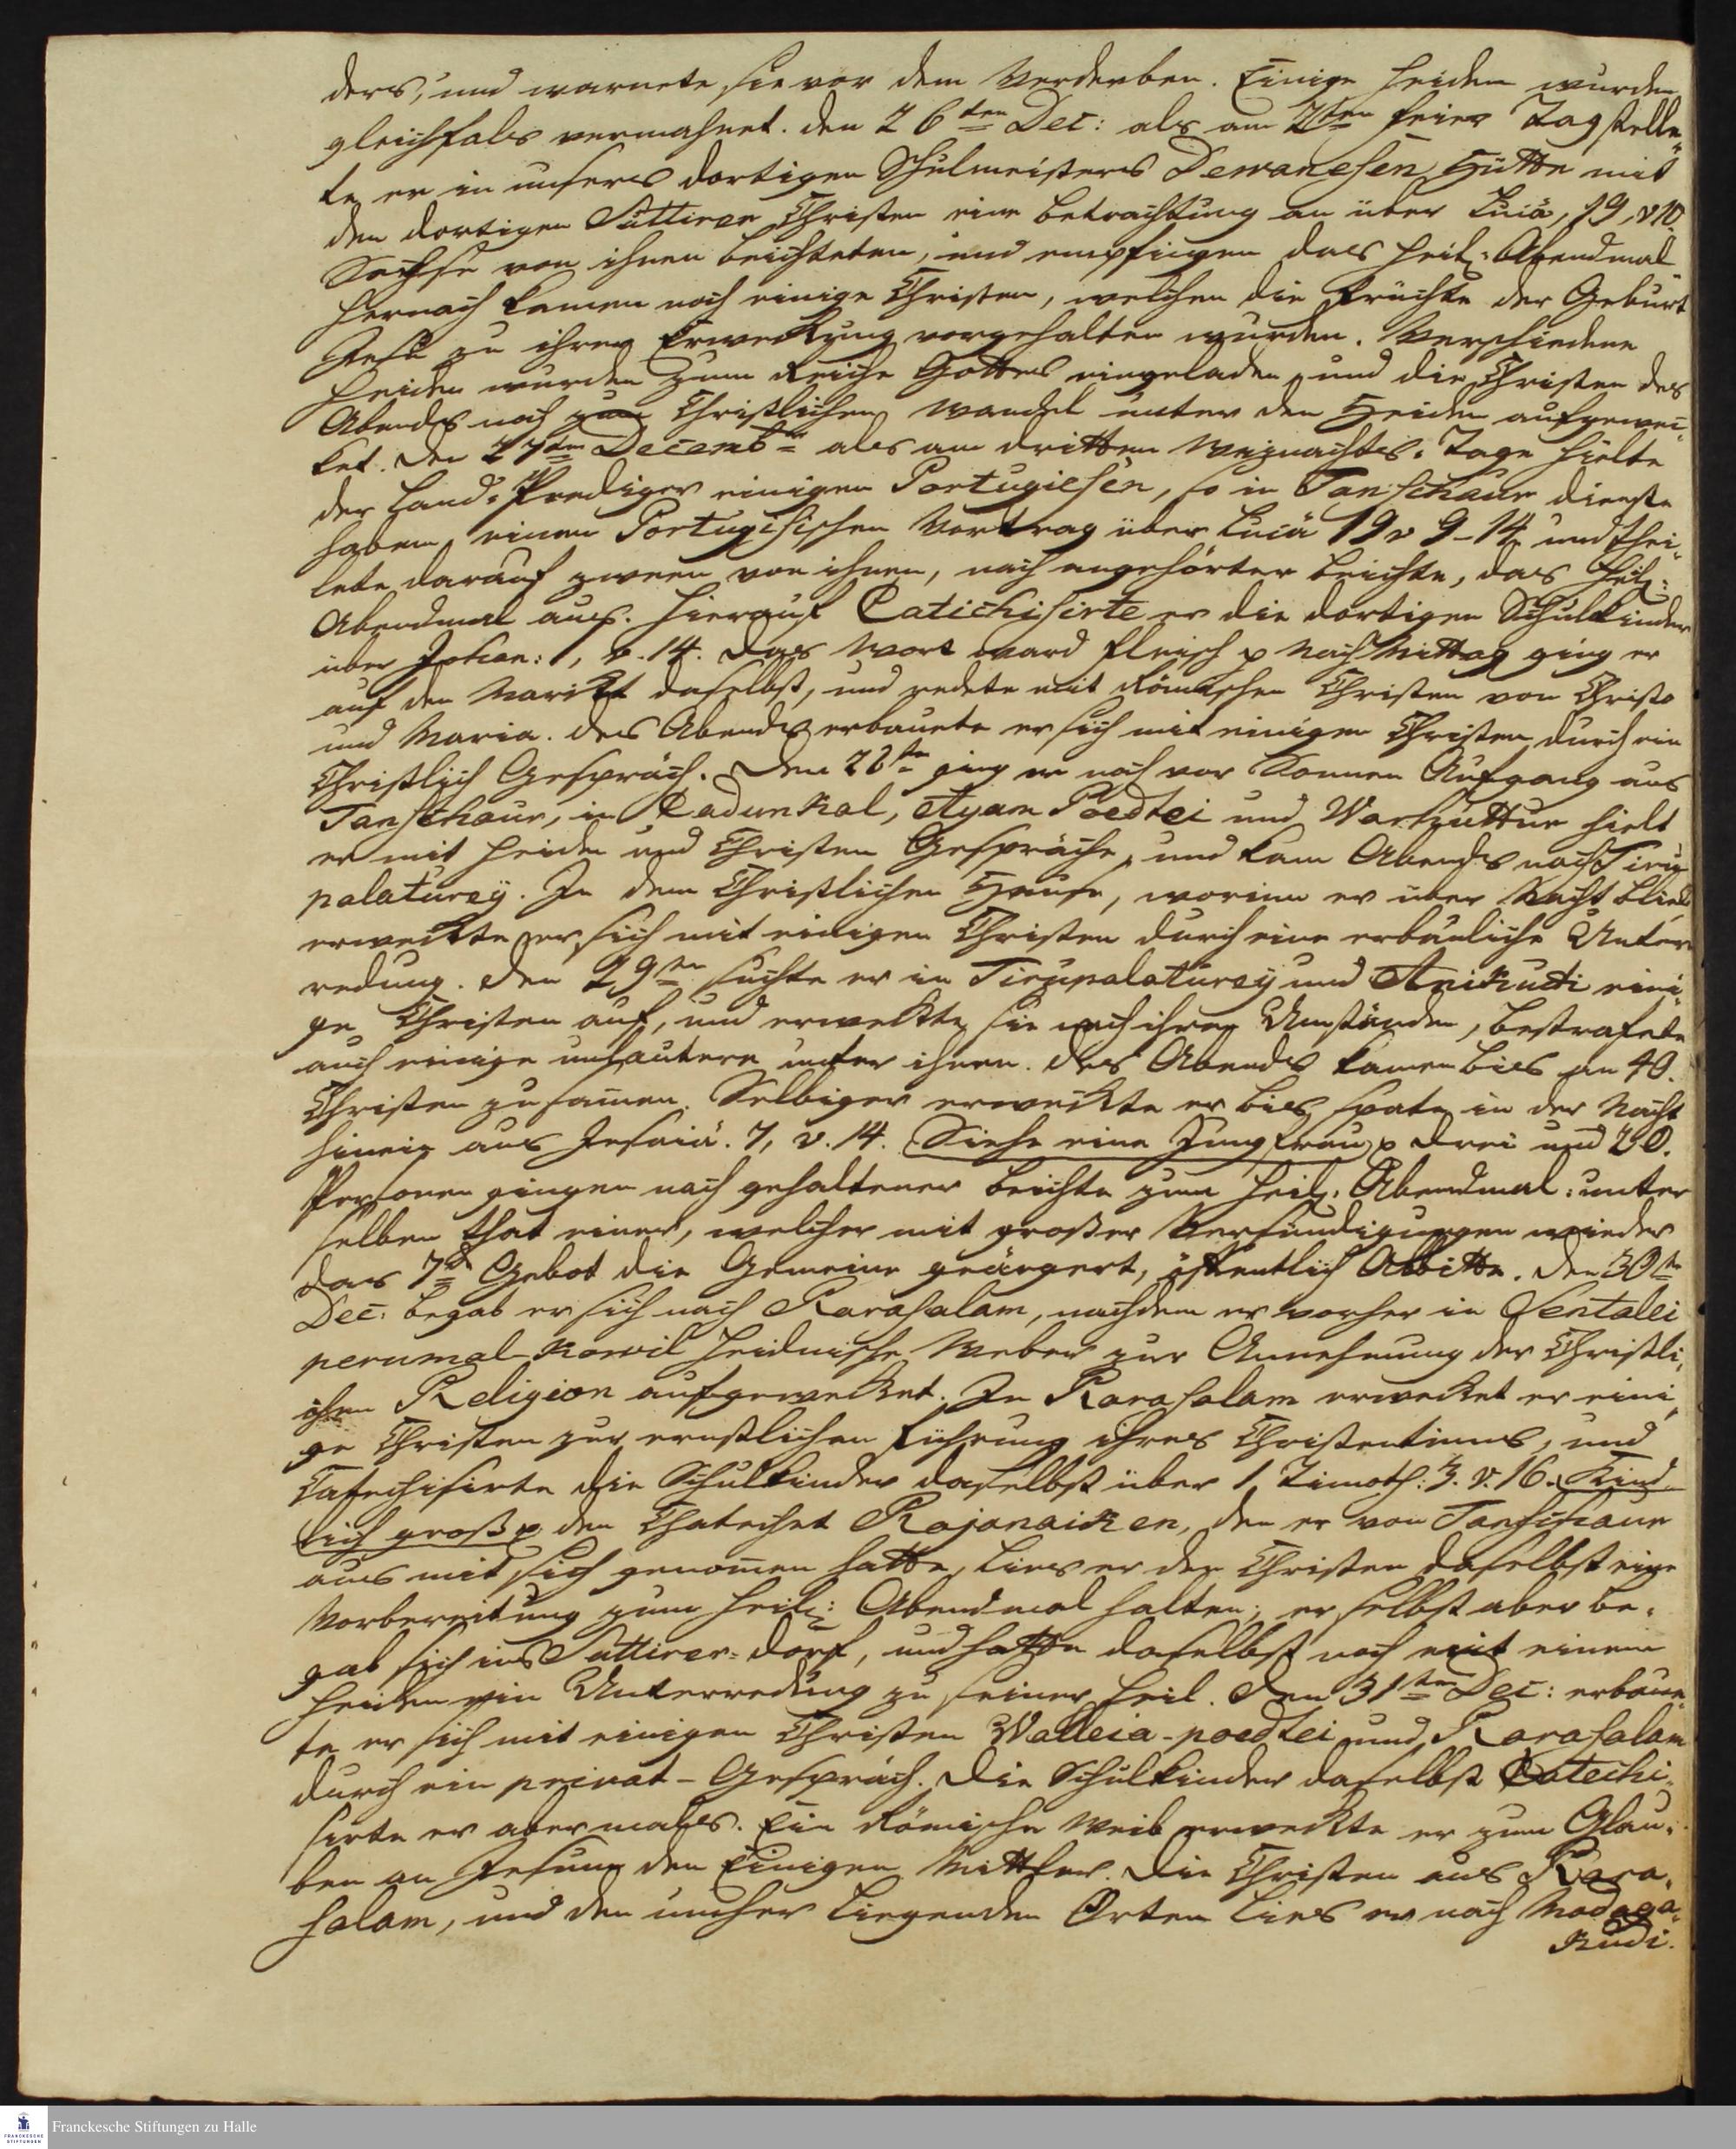 ders, und warnete sie vor dem Verderben. Einige Heiden wurden
gleichfals vermahnet. den 26ten Dec: als am 2ten feier Tag stelle„
te er in unsers dortigen Schulmeisters Dewanesen Hütte mit
den dortigen Suttirer Christen eine betrachtung an über Lucä, 19, v 10.
Sechse von ihnen beichteten, und empfingen das heil: Abendmal
Hernach kamen noch einige Christen, welchen die Früchte der Geburt
Jesu zu ihrer Erweckung vorgehalten wurden. Verschiedene
Heiden wurden zum Reiche Gottes eingeladen, und die Christen des
Abends noch zum Christlichen Wandel unter den Heiden aufgewec„
ket. den 27ten Decembr als am dritten Weignachts-Tage hielte
der Land-Prediger einigen Portugiesen, so in Tanschaur dienste
haben, einen Portugisischen Vortrag über Lucä 19 v 9-14 und thei„
lete darauf zween von ihnen, nach angehörter beichte, das heil:
Abendmal aus. Hierauf Catichisirte er die dortigen Schulkinder
über Johan: 1, v. 14. das Wort ward fleisch p Nach Mittag ging er
auf den Marckt daselbst, und redete mit Römischen Christen von Christo
und Maria. des Abends erbauete er sich mit einigen Christen durch ein
Christlich Gespräch. Den 28te ging er noch vor Sonnen Aufgang aus
Tanschaur, in Cadunkal, Ayam Poedtei und Warhuttur hielt
er mit Heiden und Christen Gespräche, und kam Abends nach Tiru„
palaturey. In dem Christlichen Hause, worinn er über Nacht blieb
erweckte er sich mit einigen Christen durch eine erbauliche Unter„
redung. den 29te suchte er in Tirupalaturey und Anikudi eini„
ge Christen auf, und erweckte sie nach ihren Umständen, bestrafete
auch einige unlautere unter ihnen. des Abends kamen bis an 40.
Christen zusamen. Selbiger erweckte er bis spate in der Nacht
hinein aus Jesaiä. 7, v. 14. Siehe eine Jungfrau p drei und 20.
Personen gingen nach gehaltener beichte zum heil. Abendmal: unter
selben that einer, welcher mit großer Versündigungen wieder
das 7te Gebot die Gemeine geärgert, öffentlich Abbitte. den 30te
Dec: begab er sich nach Karasalam, nachdem er vorher in Sentalei
perumal-kowil Heidnische Weber zur Annehmung der Christli„
chen Religion aufgewecket. In Karasalam erwecket er eini„
ge Christen zur ernstlichen Führung ihres Christentums, und
Catechisirte die Schulkinder daselbst über 1 Timoth: 3. v. 16. Kind„
lich groß p den Chatechet Rajanaiken, den er von Tanschaur
aus mit sich genomen hatte, lies er den Christen daselbst eine
Vorbereitung zum heil: Abendmal halten, er selbst aber be„
gab sich ins Suttirer-dorf, und hatte daselbst noch mit einem
Heiden ein Unterredung zu seiner Heil. den 31ten Dec: erbaue„
te er sich mit einigen Christen Walleia-poedtei und Karasalam
durch ein privat-Gespräch. Die Schulkinder daselbst Catechi„
sirte er abermals. Ein Römische Weib erweckte er zum Glau„
ben an Jesum den Einigen Mittler. Die Christen aus Kara„
salam, und den umher Liegenden Orten lies er nach Madaga„
kudi.
Franckesche Stiftungen zu Halle
FRANCKESCHE
STIFTUNGEN